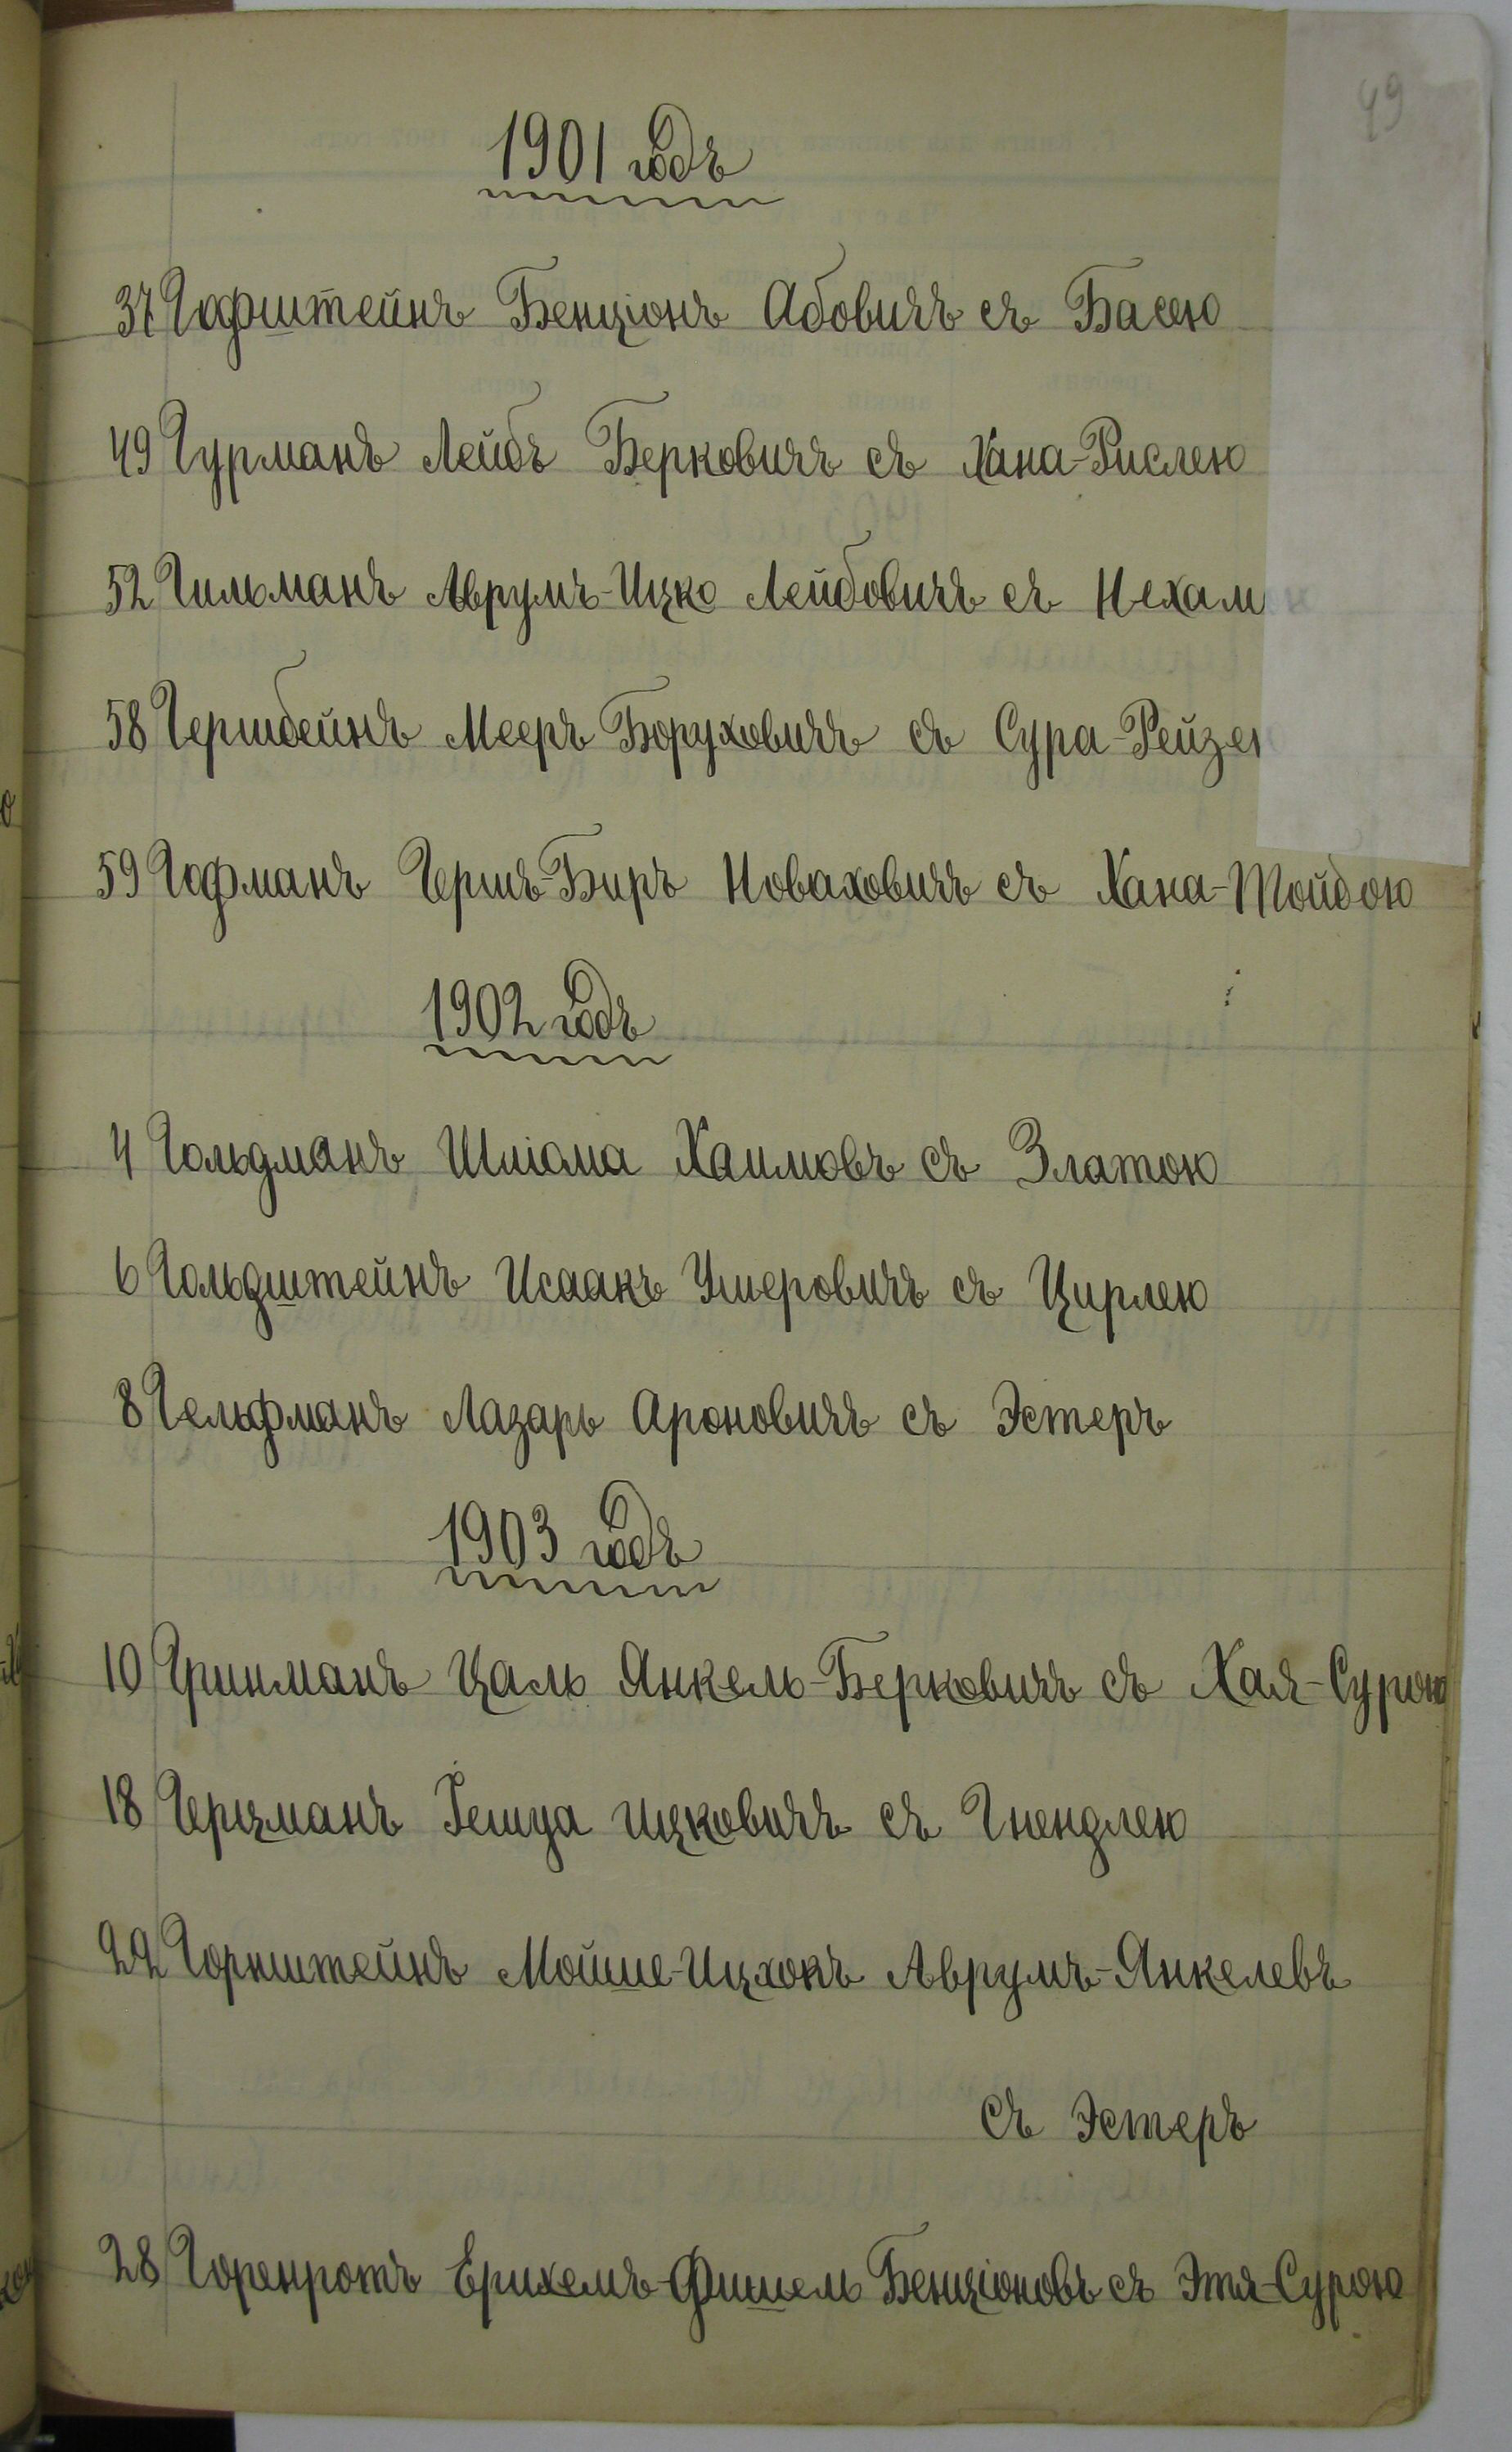 49
1901 годъ
37 Гофштейнъ Бенціонъ Абовичъ съ Басею
49 Гурманъ Лейбъ Берковичъ съ Хана-Рислею
52 Гильманъ Аврумъ-Ицко Лейбовичъ съ Нехам
58 Гершбейнъ Мееръ Боруховичъ съ Сура-Рейзе
59 Гофманъ Гершъ-Биръ Новаховичъ съ Хана-Тойбою
1902 годъ
4 Гольдманъ Шліома Хаимовъ съ Златою
6 Гольдштейнъ Исаакъ Ушеровичъ съ Цирлею
8 Гельфманъ Лазарь Ароновичъ съ Эстеръ
1903 годъ
10 Гринманъ Цаль Янкель-Берковичъ съ Хая-Сурою
18 Герцманъ Іешуа Ицковичъ съ Гнендлею
22 Горнштейнъ Мойше-Ицхокъ Аврумъ-Янкелевъ
съ Эстеръ
28 Горенротъ Ерихемъ-Фишель Бенціоновъ съ Этя-Сурою